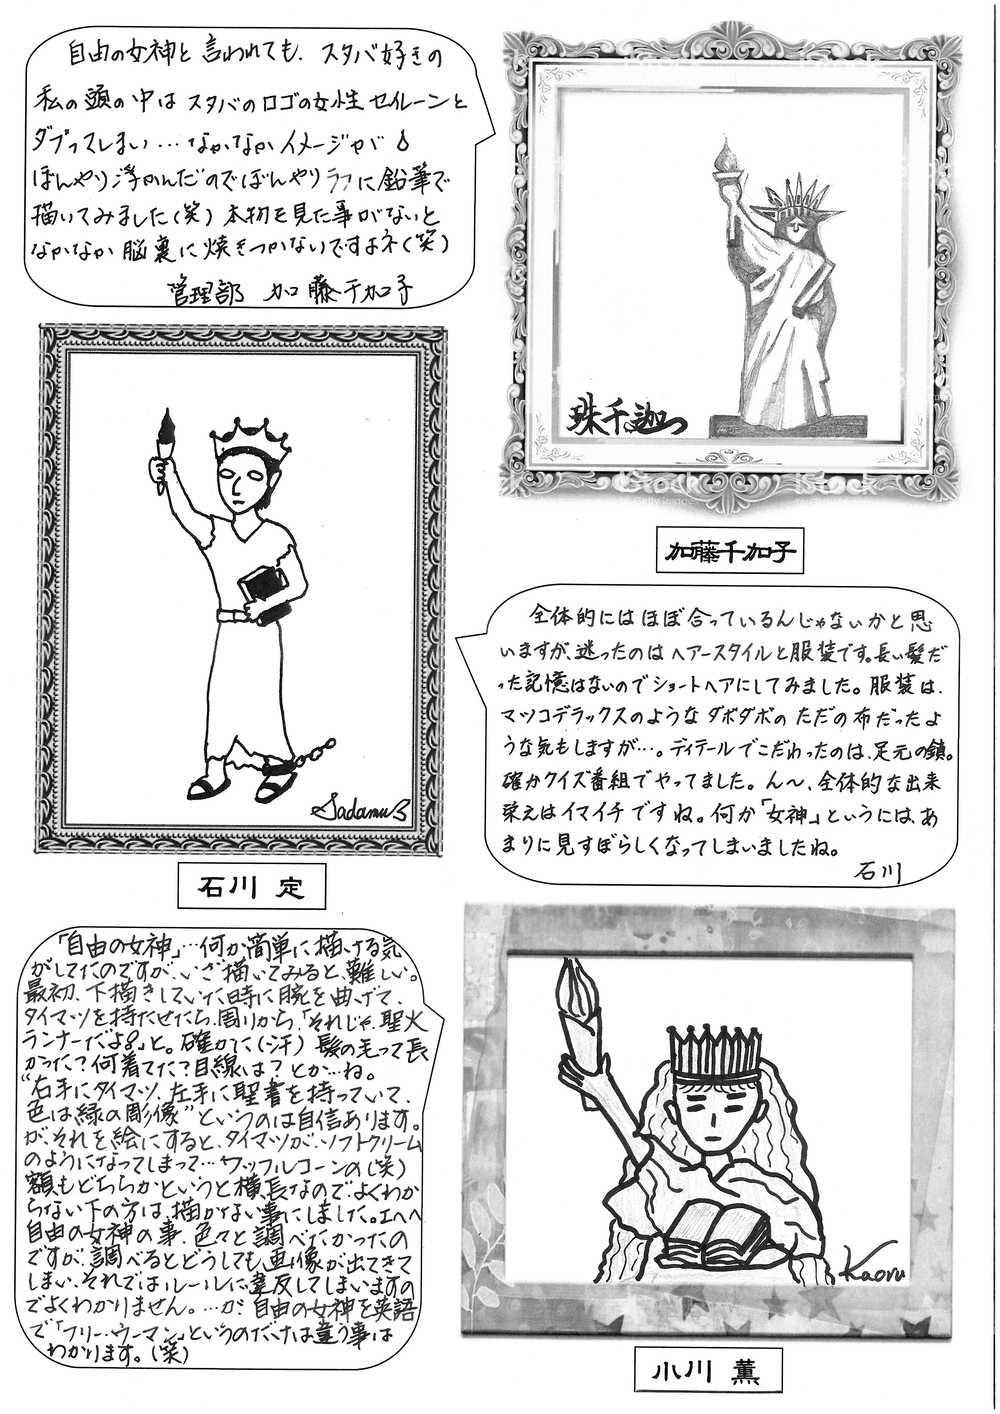 自由の女神と言われても、スタバ好きの
私の頭の中はスタバのロゴの女性セイレーンと
ダブってしまい…なかなかイメージが
ぼんやり浮かんだのでぼんやりラフに鉛筆で
描いてみました(笑)本物を見た事がないと
なかなか脳裏に焼きつかないですよネ(笑)
管理部 加藤千加子
珠千迦
iStock
iStock
加藤千加子
SadamuB
石川 定
全体的にはほぼ合っているんじゃないかと思
いますが、迷ったのはヘアースタイルと服装です。長い髪だ
った記憶はないのでショートヘアにしてみました。服装は、
マツコデラックスのようなダボダボのただの布だったよ
うな気もしますが…。ディテールでこだわったのは、足元の鎖。
確かクイズ番組でやってました。ん～、全体的な出来
栄えはイマイチですね。何か「女神」というには、あ
まりに見すぼらしくなってしまいましたね。
石川
「自由の女神」…何か簡単に描ける気
がしてたのですが、いざ描いてみると難しい。
最初、下描きしていた時に腕を曲げて、
タイマツを持たせたら、周りから、「それじゃ、聖火
ランナーだよ!」と。確かに(汗)髪の毛って長
かった?何着てた?目線は?とか…ね。
"右手にタイマツ、左手に聖書を持っていて、
色は緑の彫像"というのは自信あります。
が、それを絵にすると、タイマツが、ソフトクリーム
のようになってしまって…ワッフルコーンの(笑)
額もどちらかというと横長なのでよくわか
らない下の方は、描かない事にしました。エヘヘ
自由の女神の事、色々と調べたかったの
ですが、調べるとどうしても画像が出てきて
しまい、それではルールに違反してしまいますの
でよくわかりません。…が、自由の女神を英語
で「フリー・ウーマン」というのだけは違う事は
わかります。(笑)
Kaoru
小川 薫